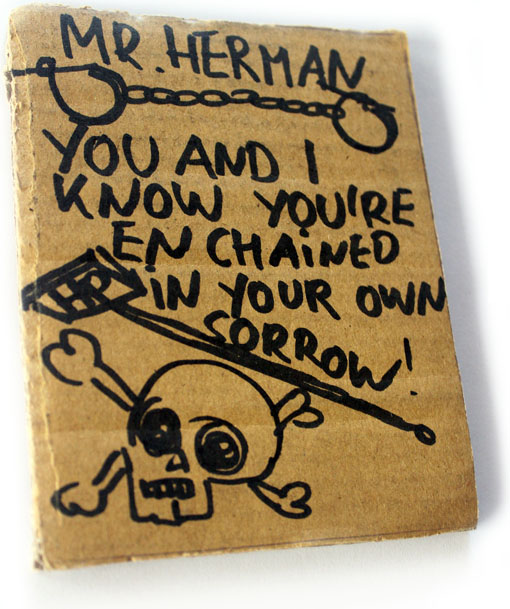 MR. HERMAN
YOU AND I
KNOW YOU'RE
EN CHAINED
HP IN YOUR OWN
SORROW!